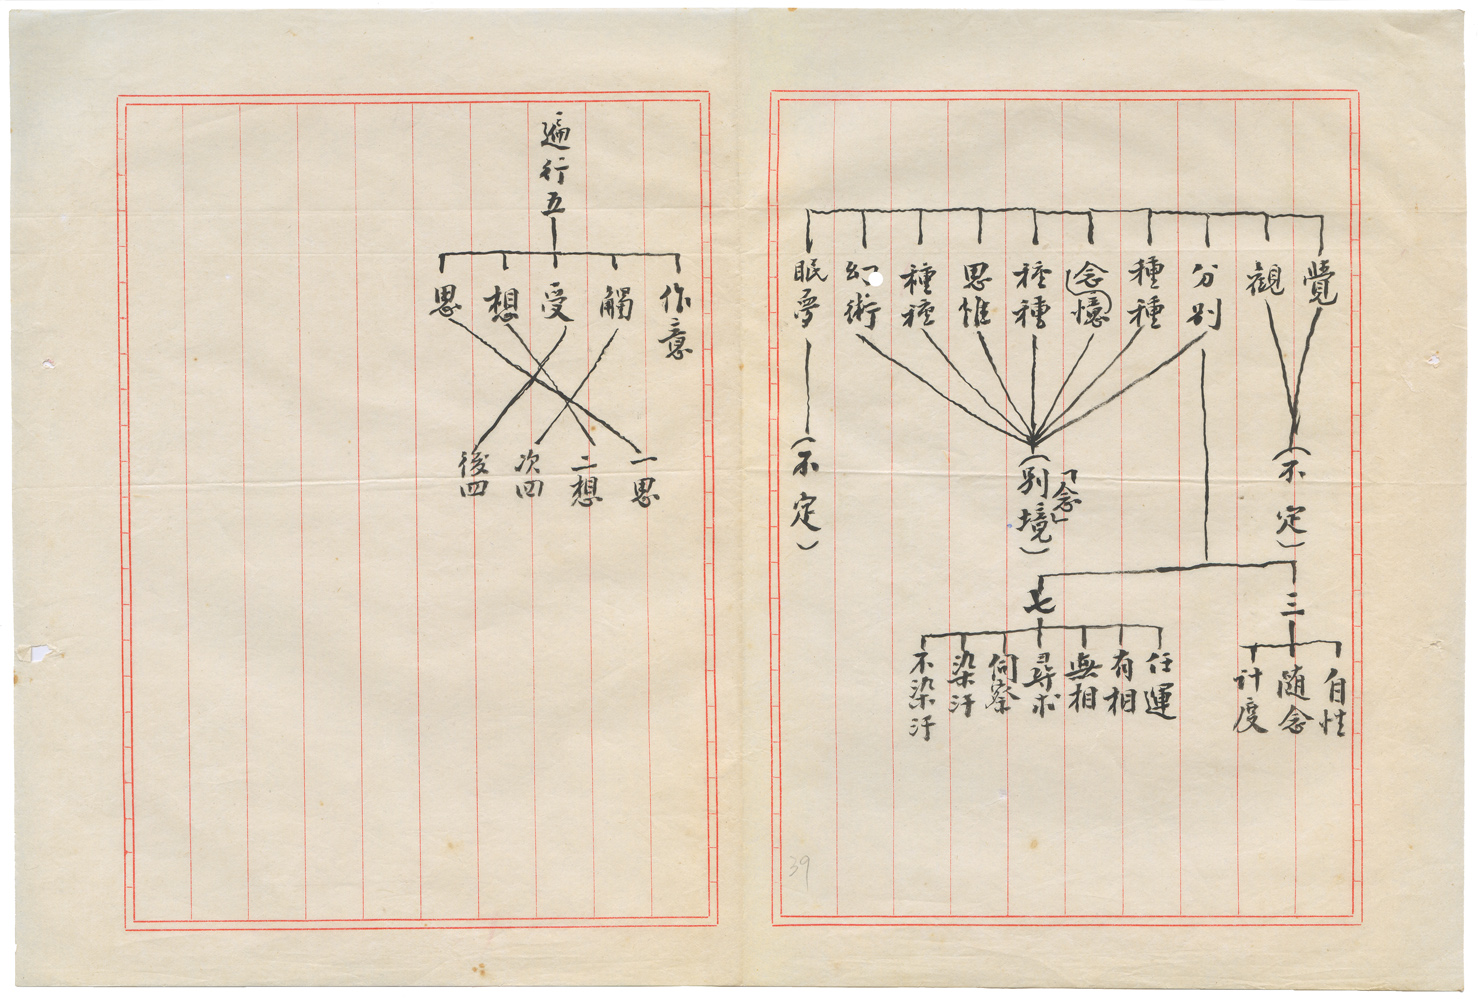 覺
觀
分別
種種
念憶
種種
思惟
種種
幻術
眠夢
(不定)
「念」
(別境)
(不定)
三
自性
随念
計度
七
任運
有相
無相
尋求
伺察
染汙
不染汙
39
遍行五
作意
觸
受
想
思
一思
二想
次四
後四